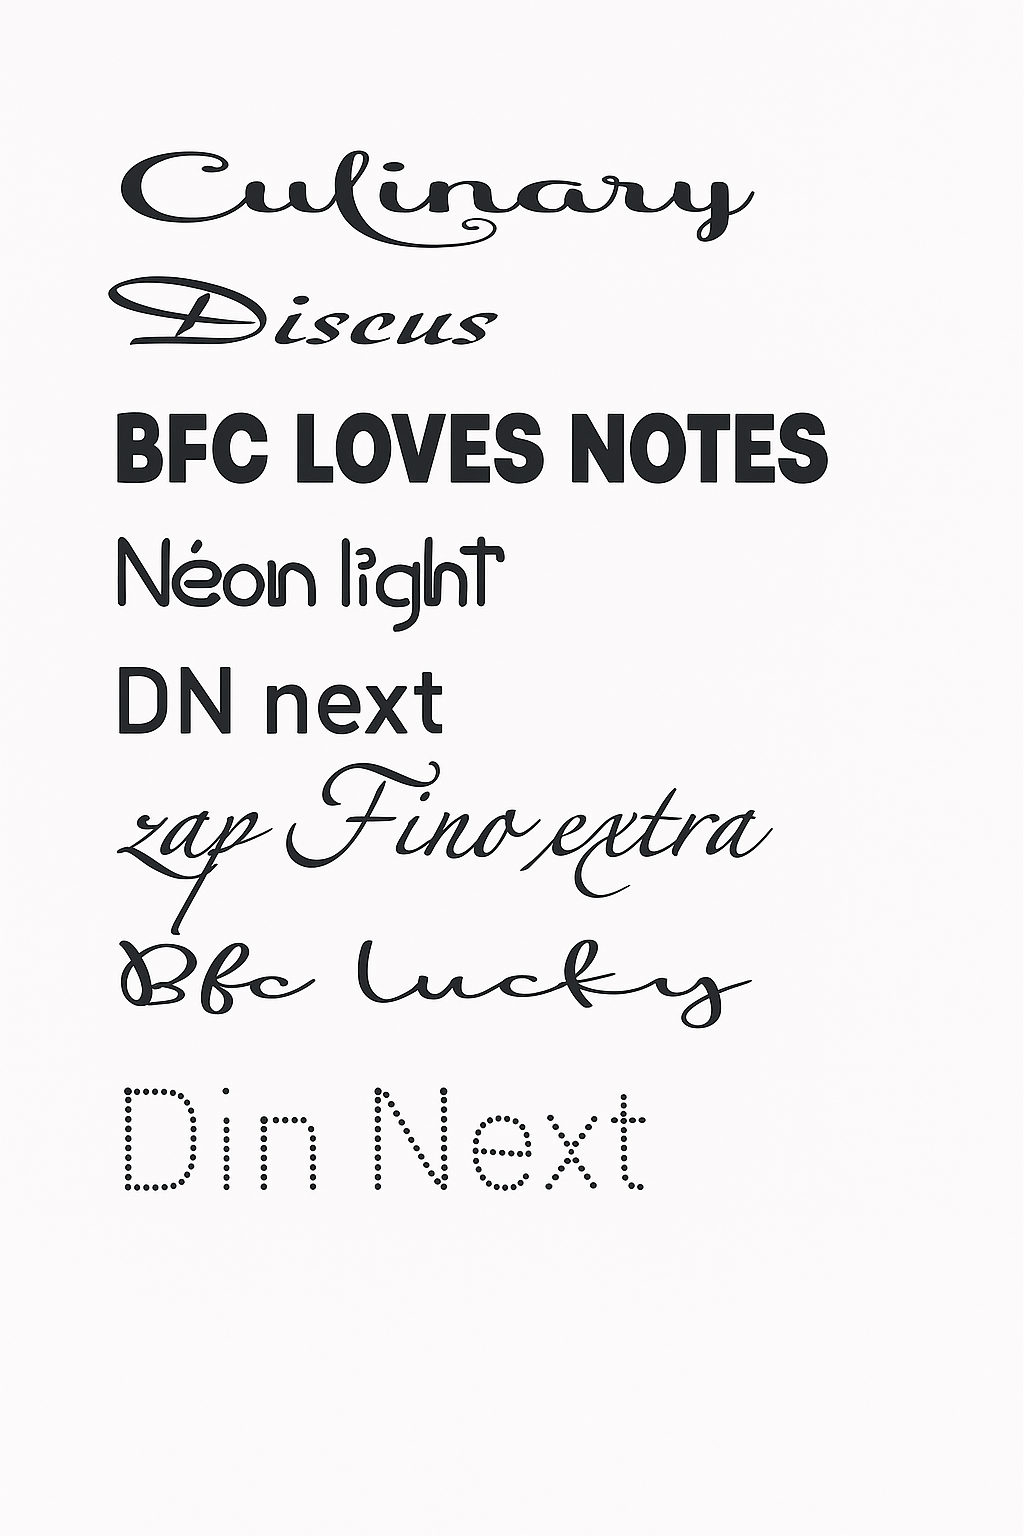 Culinary
Discus
BFC LOVES NOTES
Néon light
DN next
zap Fino extra
Bfc lucky
Din Next